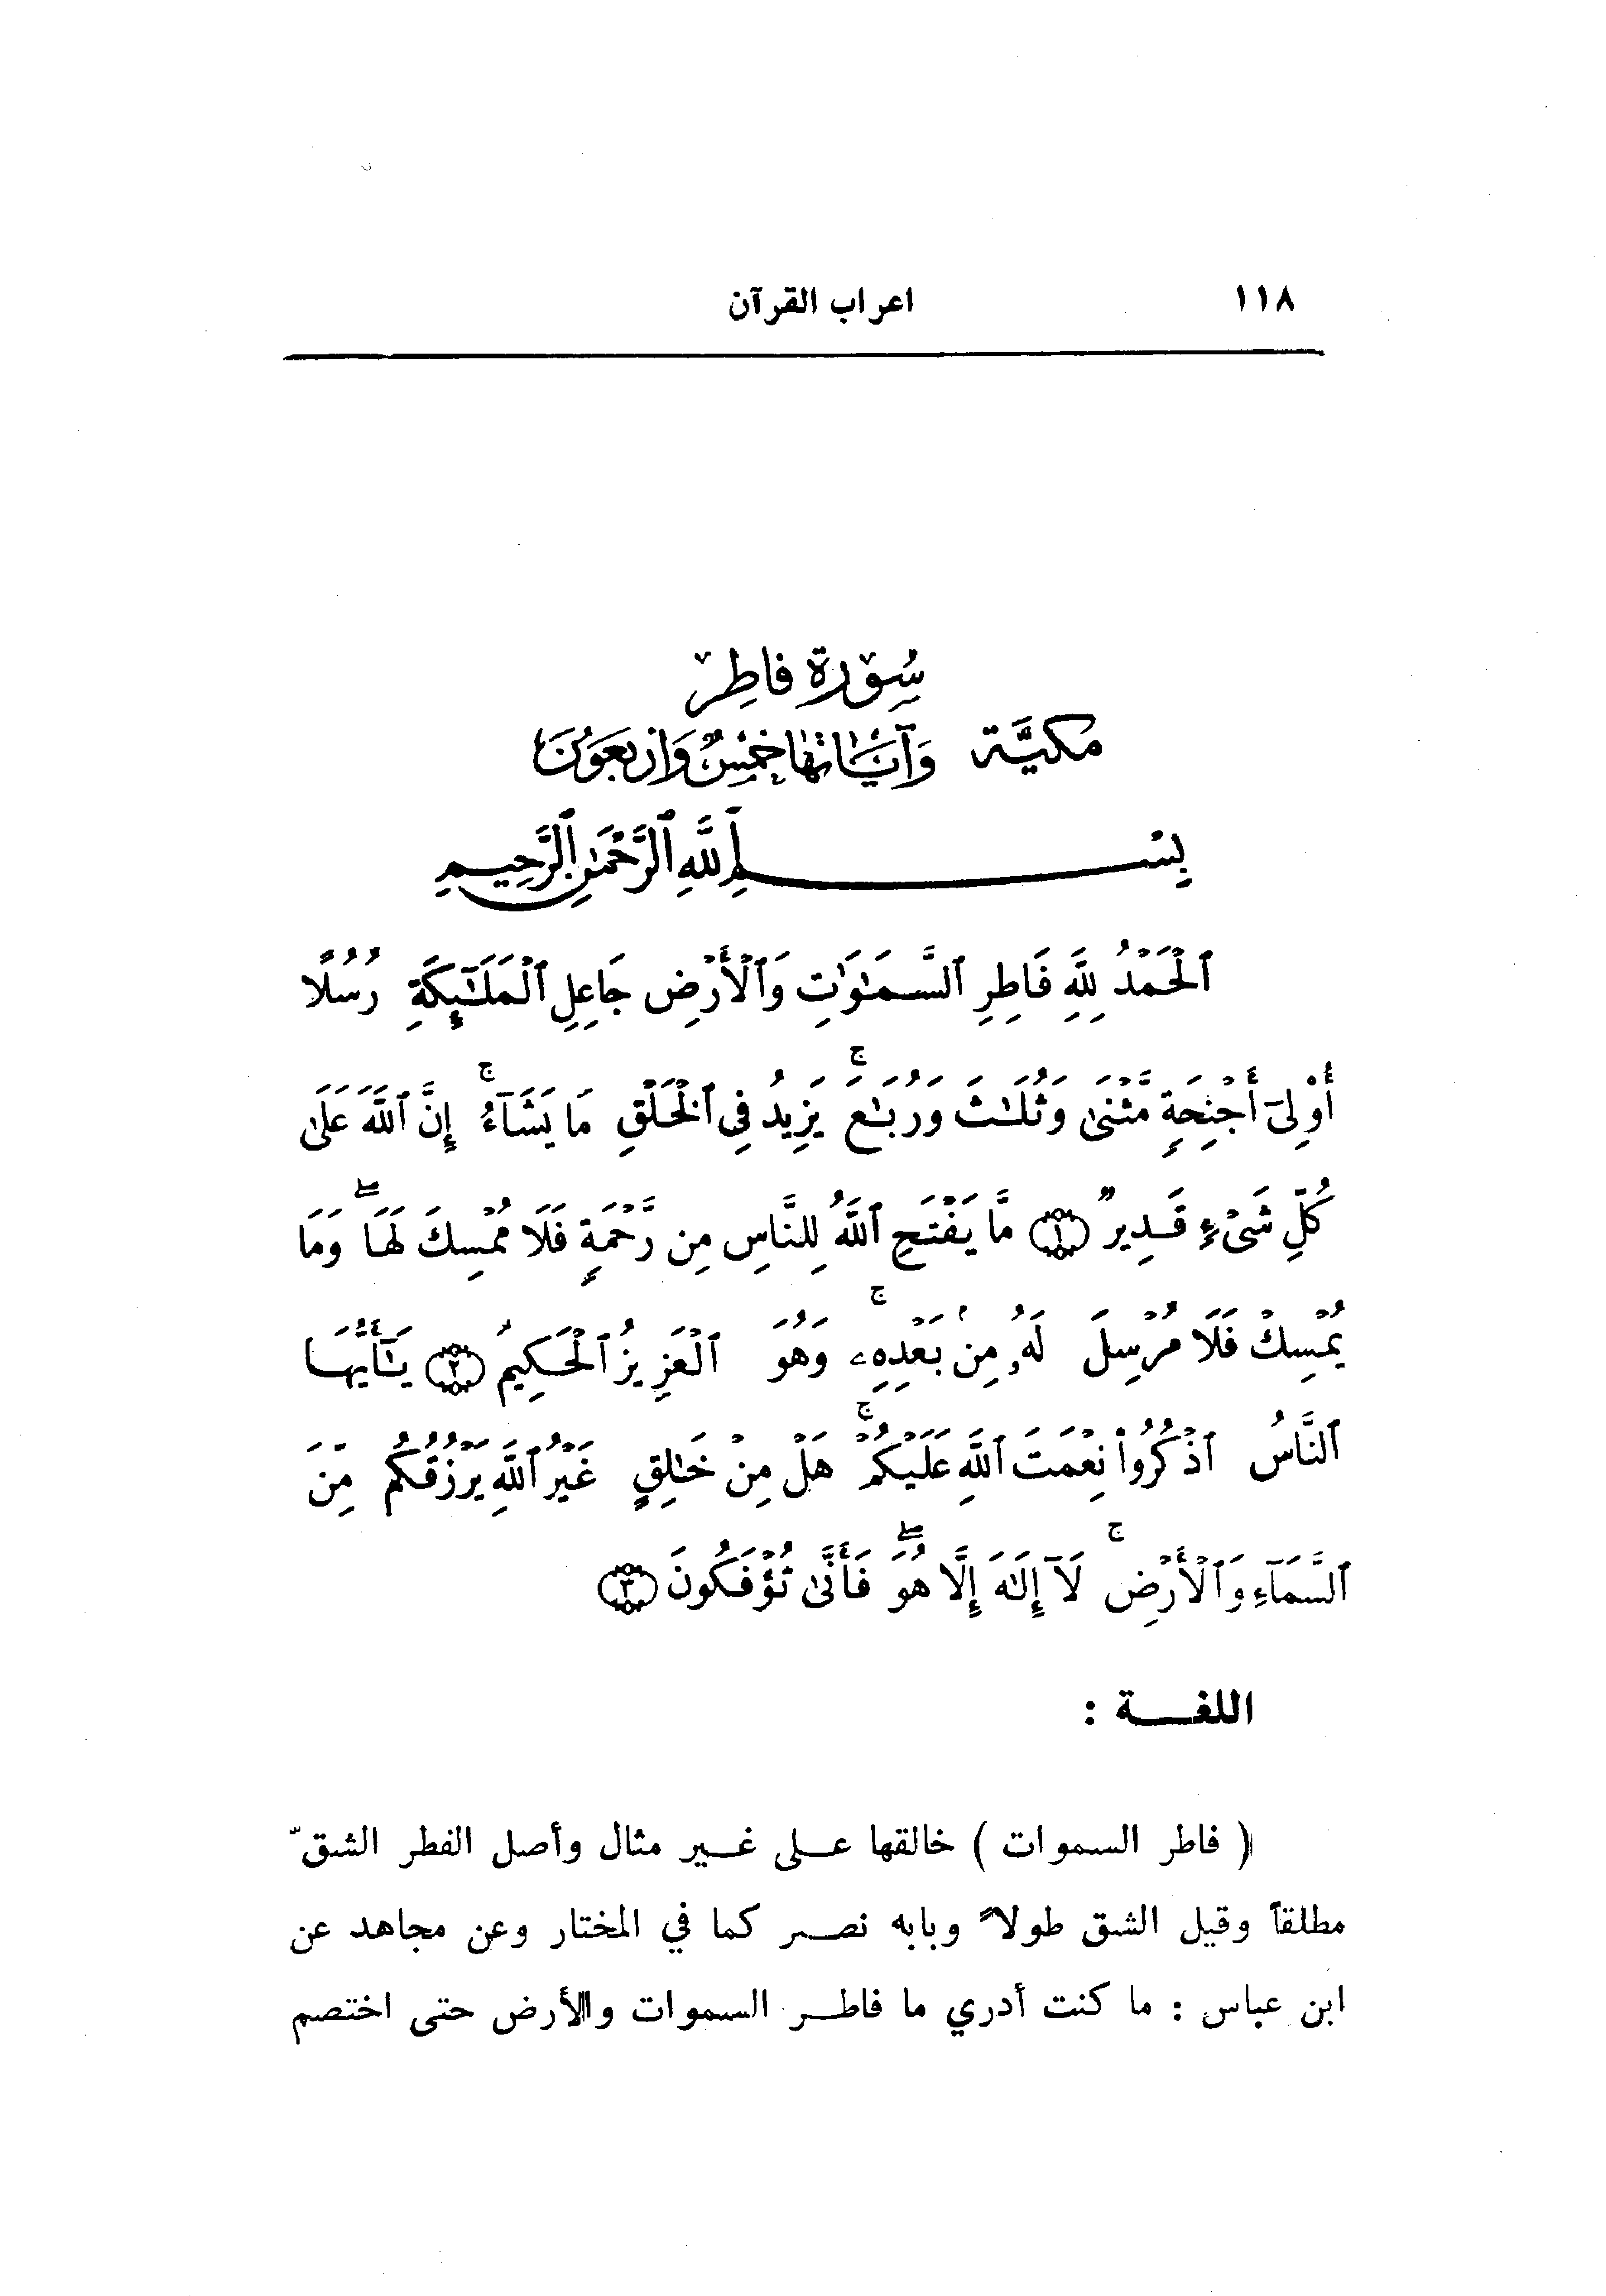 ١١٨ اعراب القرآن
سُورَة فَاطِر
مَكيَّة وَآيَاتُهَا خَمْسٌ وَأَرْبَعُونَ
بِسْمِ ٱللَّهِ ٱلرَّحْمَٰنِ ٱلرَّحِيمِ
ٱلْحَمْدُ لِلَّهِ فَاطِرِ ٱلسَّمَٰوَٰتِ وَٱلْأَرْضِ جَاعِلِ ٱلْمَلَٰٓئِكَةِ رُسُلًا
أُو۟لِىٓ أَجْنِحَةٍ مَّثْنَىٰ وَثُلَٰثَ وَرُبَٰعَ ۚ يَزِيدُ فِى ٱلْخَلْقِ مَا يَشَآءُ ۚ إِنَّ ٱللَّهَ عَلَىٰ
كُلِّ شَىْءٍ قَدِيرٌ ﴿١﴾ مَّا يَفْتَحِ ٱللَّهُ لِلنَّاسِ مِن رَّحْمَةٍ فَلَا مُمْسِكَ لَهَا ۖ وَمَا
يُمْسِكْ فَلَا مُرْسِلَ لَهُۥ مِنۢ بَعْدِهِۦ ۚ وَهُوَ ٱلْعَزِيزُ ٱلْحَكِيمُ ﴿٢﴾ يَٰٓأَيُّهَا
ٱلنَّاسُ ٱذْكُرُوا۟ نِعْمَتَ ٱللَّهِ عَلَيْكُمْ ۚ هَلْ مِنْ خَٰلِقٍ غَيْرُ ٱللَّهِ يَرْزُقُكُم مِّنَ
ٱلسَّمَآءِ وَٱلْأَرْضِ ۚ لَآ إِلَٰهَ إِلَّا هُوَ ۖ فَأَنَّىٰ تُؤْفَكُونَ ﴿٣﴾
اللغـــة :
( فاطر السموات ) خالقها عـلى غـير مثال وأصل الفطر الشقّ
مطلقاً وقيل الشق طولاً وبابه نصـر كما في المختار وعن مجاهد عن
ابن عباس : ما كنت أدري ما فاطـر السموات والأرض حتى اختصم